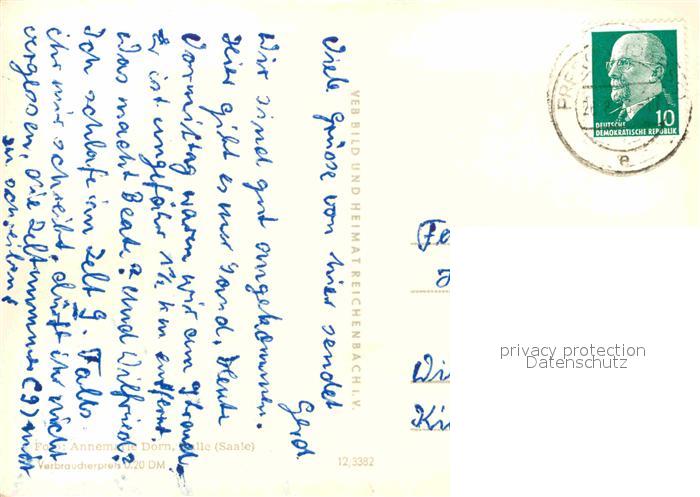 Viele Grüsse von hier sendet
Gerd.
Wir sind gut angekommen.
Hier gibt es nur Sand. Heute
Vormittag waren wir am Strand.
Er ist ungefähr 1½ km entfernt.
Was macht Beate? und Wilfried?
Ich schlafe im Zelt 9. Falls
ihr mir schreibt, dürft ihr nicht
vergessen, die Zeltnummer (9) mit
zu schreiben
VEB BILD UND HEIMAT REICHENBACH I. V.
Foto: Annemarie Dorn, Halle (Saale)
Verbraucherpreis 0,20 DM
12/3382
10
DEUTSCHE
DEMOKRATISCHE REPUBLIK
e
Fa
Wi
privacy protection
Datenschutz